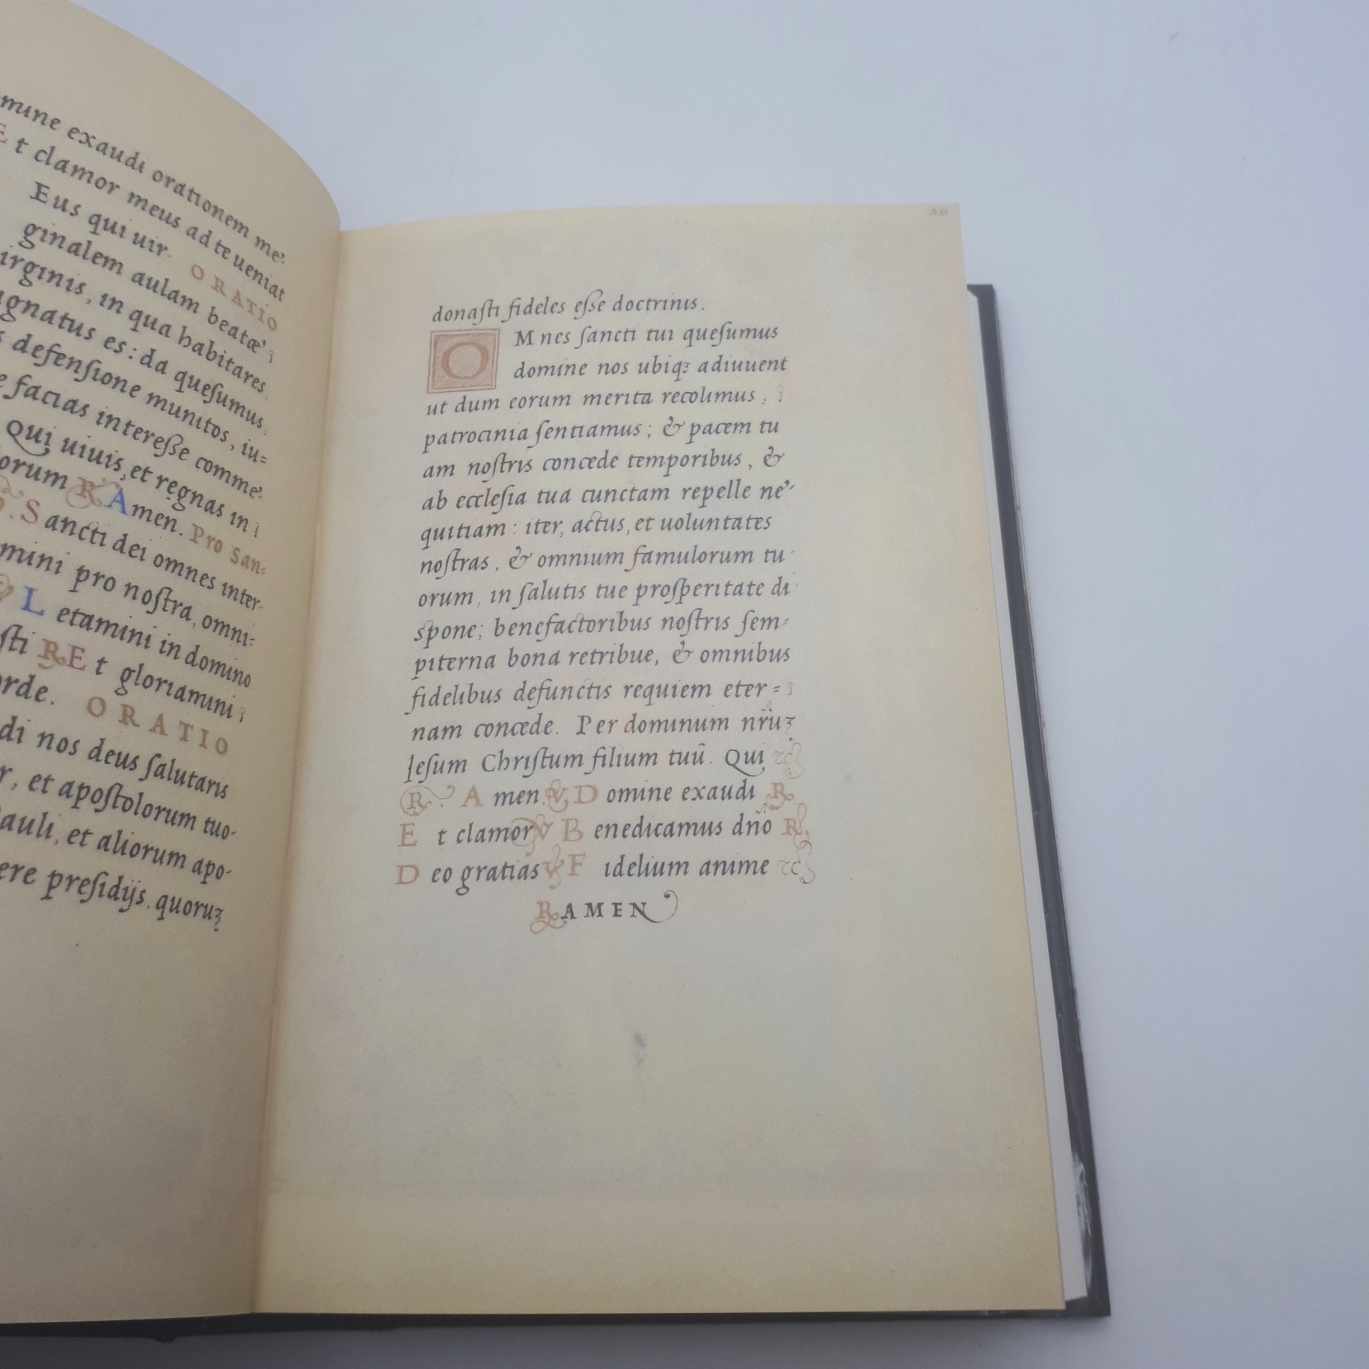 mine exaudi orationem me
E t clamor meus ad te ueniat
Eus qui uir ORATIO
ginalem aulam beatæ
irginis, in qua habitares
gnatus es: da quesumus,
defensione munitos, iu=
facias interesse comme
Qui uiuis, et regnas in
orum R Amen. Pro San=
Sancti dei omnes inter
mini pro nostra, omni=
L etamini in domino
sti R E t gloriamini
orde. ORATIO
di nos deus salutaris
r, et apostolorum tuo-
auli, et aliorum apo-
ere presidijs. quoruꝫ
30
donasti fideles esse doctrinis.
O Mnes sancti tui quesumus
domine nos ubiqꝫ adiuuent
ut dum eorum merita recolimus,
patrocinia sentiamus; & pacem tu
am nostris concede temporibus, &
ab ecclesia tua cunctam repelle ne
quitiam: iter, actus, et uoluntates
nostras, & omnium famulorum tu
orum, in salutis tue prosperitate di
spone; benefactoribus nostris sem-
piterna bona retribue, & omnibus
fidelibus defunctis requiem eter=
nam concede. Per dominum nr̃uꝫ
Iesum Christum filium tuũ. Qui
R. A men. V D omine exaudi R
E t clamor V B enedicamus dño R.
D eo gratias V F idelium anime
R AMEN